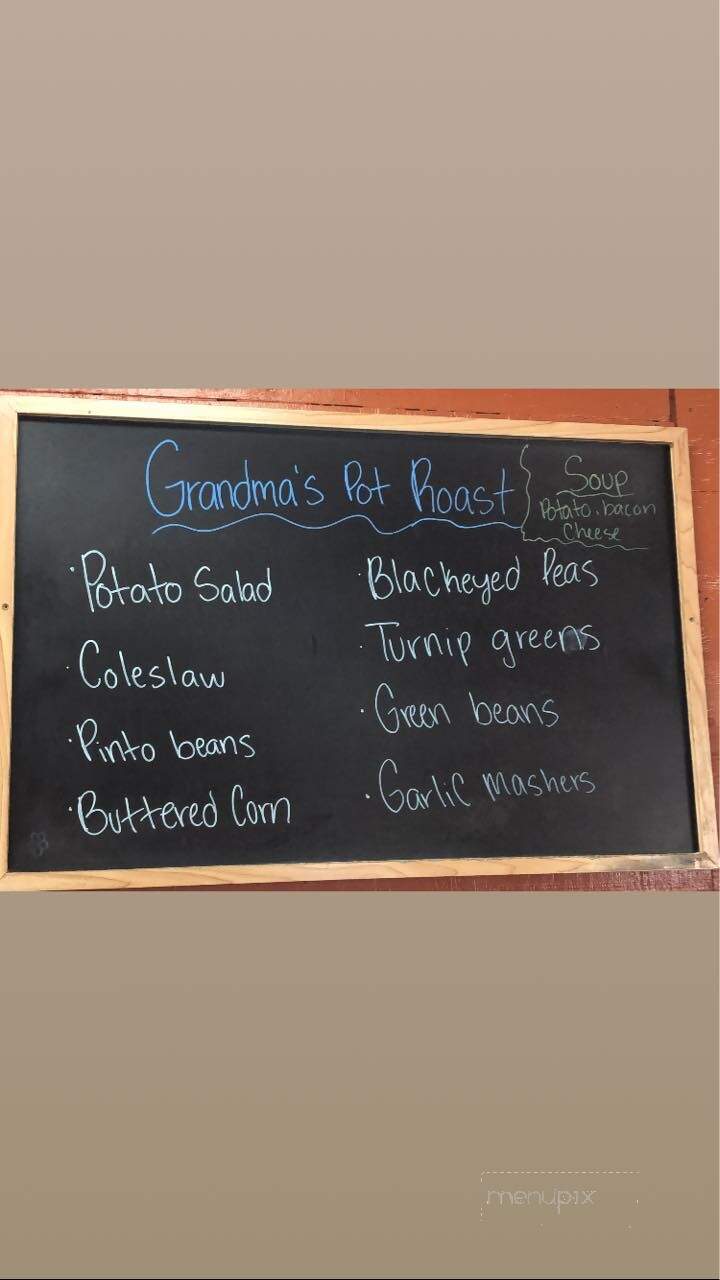 Grandma's Pot Roast
Soup
Potato. bacon
Cheese
· Potato Salad
· Coleslaw
· Pinto beans
· Buttered Corn
· Blackeyed Peas
· Turnip greens
· Green beans
· Garlic Mashers
menupix